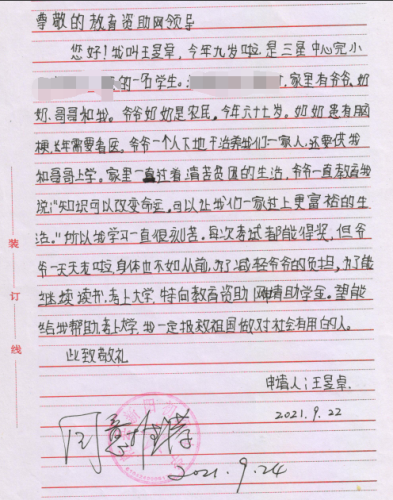 尊敬的教育资助网领导
您好！我叫王昱卓，今年九岁啦是三星中心完小
的一名学生。家里有爷爷、奶
奶、哥哥和我。爷爷奶奶是农民，今年六十七岁。奶奶患有脑
梗长年需要看医，爷爷一个人下地干活养我们一家人，还要供我
和哥哥上学。家里一直过着清苦贫困的生活，爷爷一直教育我
说："知识可以改变命运，可以让我们一家过上更富裕的生
活。"所以我学习一直很刻苦。每次考试都能得奖，但爷
爷一天天老啦，身体也不如从前，为了减轻爷爷的负担，为了能
继续读书，考上大学，特向教育资助网申请助学金。望能
给我帮助，考上大学，我一定报效祖国做对社会有用的人。
此致敬礼
申请人：王昱卓
2021.9.22
同意推荐
2021.9.24
装
订
线